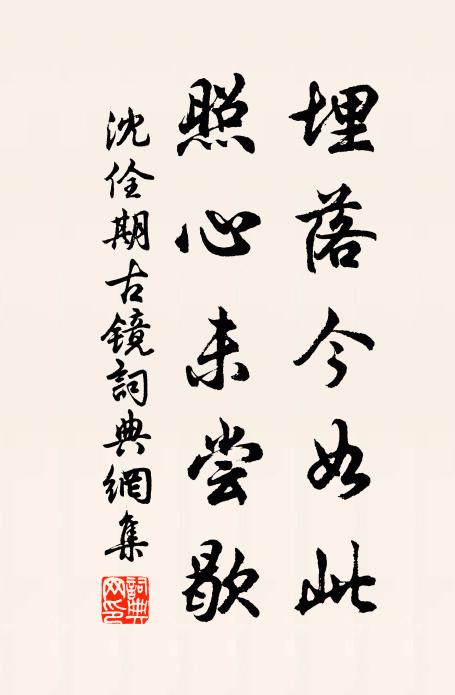 埋落今如此
照心未尝歇
沈佺期古镜詞典網集
詞典网印